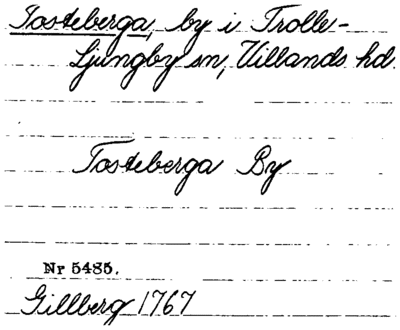 Tosteberga, by i Trolle-
Ljungby sn, Villands hd.
Tosteberga By
Nr 5485.
Gillberg 1767